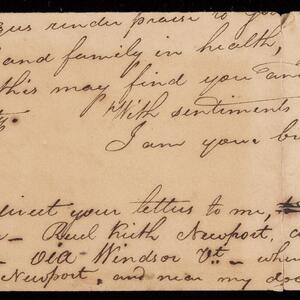 us render praise to you
and family in health,
this may find you and
With sentiments
I am your b
direct your letters to me,
Reul Keith Newport,
via Windsor Vt - whe
Newport, and near my do